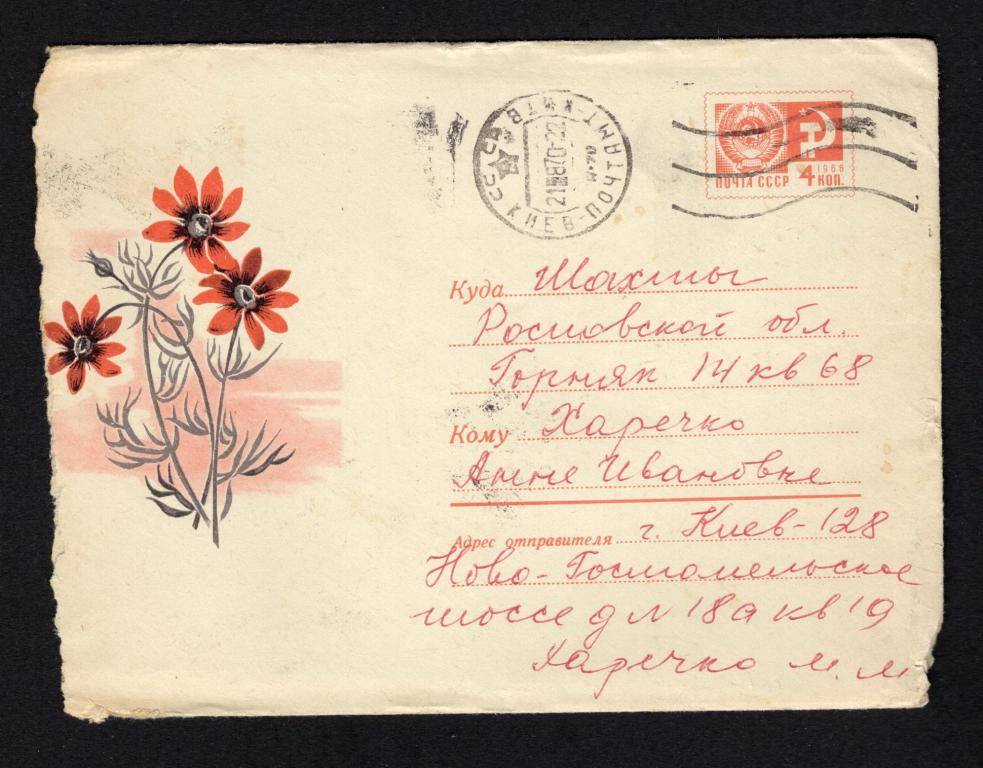 КИЕВ-ПОЧТАМТ
СССР
ПОЧТА СССР
1966
4 КОП.
Куда Шахты
Ростовской обл.
Горняк 14 кв 68
Кому Харечко
Анне Ивановне
Адрес отправителя г. Киев-128
Ново-Гостомельское
шоссе д № 18а кв 19
Харечко М. М